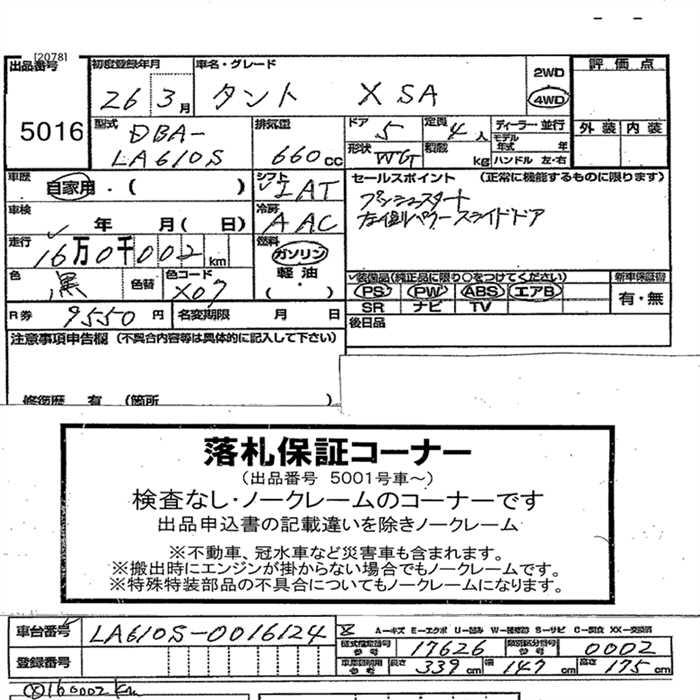 [2078]
出品番号 初度登録年月 車名・グレード 2WD 評価点
5016 26 3月 タント X SA 4WD
型式 排気量 ドア 定員 ディーラー・並行 外装 内装
DBA-LA610S 660cc 5 4人 モデル年式 年
形状 WG 積載 kg ハンドル 左・右
車歴 自家用・( ) シフト IAT セールスポイント (正常に機能するものに限ります)
車検 年 月( 日) 冷房 AAC プッシュスタート
左後パワースライドドア
走行 16万0千002km 燃料 ガソリン
軽油
( ・ )
色 黒 色替 色コード X07 装備品(純正品に限り○をつけてください) 新車保証書
PS PW ABS エアB 有・無
SR ナビ TV
R券 9550円 名変期限 月 日 後日品
注意事項申告欄 (不具合内容等は具体的に記入して下さい)
修復歴 有 (箇所
落札保証コーナー
(出品番号 5001号車～)
検査なし・ノークレームのコーナーです
出品申込書の記載違いを除きノークレーム
※不動車、冠水車など災害車も含まれます。
※搬出時にエンジンが掛からない場合でもノークレームです。
※特殊特装部品の不具合についてもノークレームになります。
車台番号 LA610S-0016124 A－キズ E－エクボ U－凹み W－補修跡 S－サビ C－腐食 XX－交換済
型式指定番号 参考 17626 類別区分番号 参考 0002
登録番号 車庫証明用 参考 長さ 339cm 幅 147cm 高さ 175cm
160002km